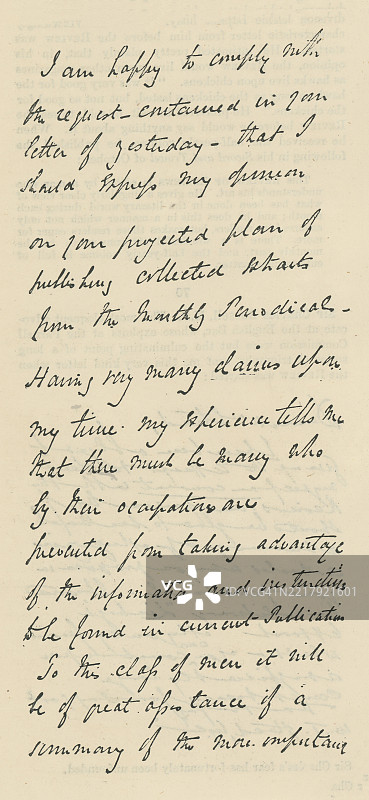 I am happy to comply with
the request - contained in your
letter of yesterday - that I
should express my opinion
on your projected plan of
publishing collected extracts
from the Monthly Periodicals -
Having very many claims upon
my time. my experience tells me
that there must be many who
by their occupations are
prevented from taking advantage
of the information and instruction
to be found in current Publications
To this class of men it will
be of great assistance if a
summary of the more important
VCG
ID:VCG41N2217921601